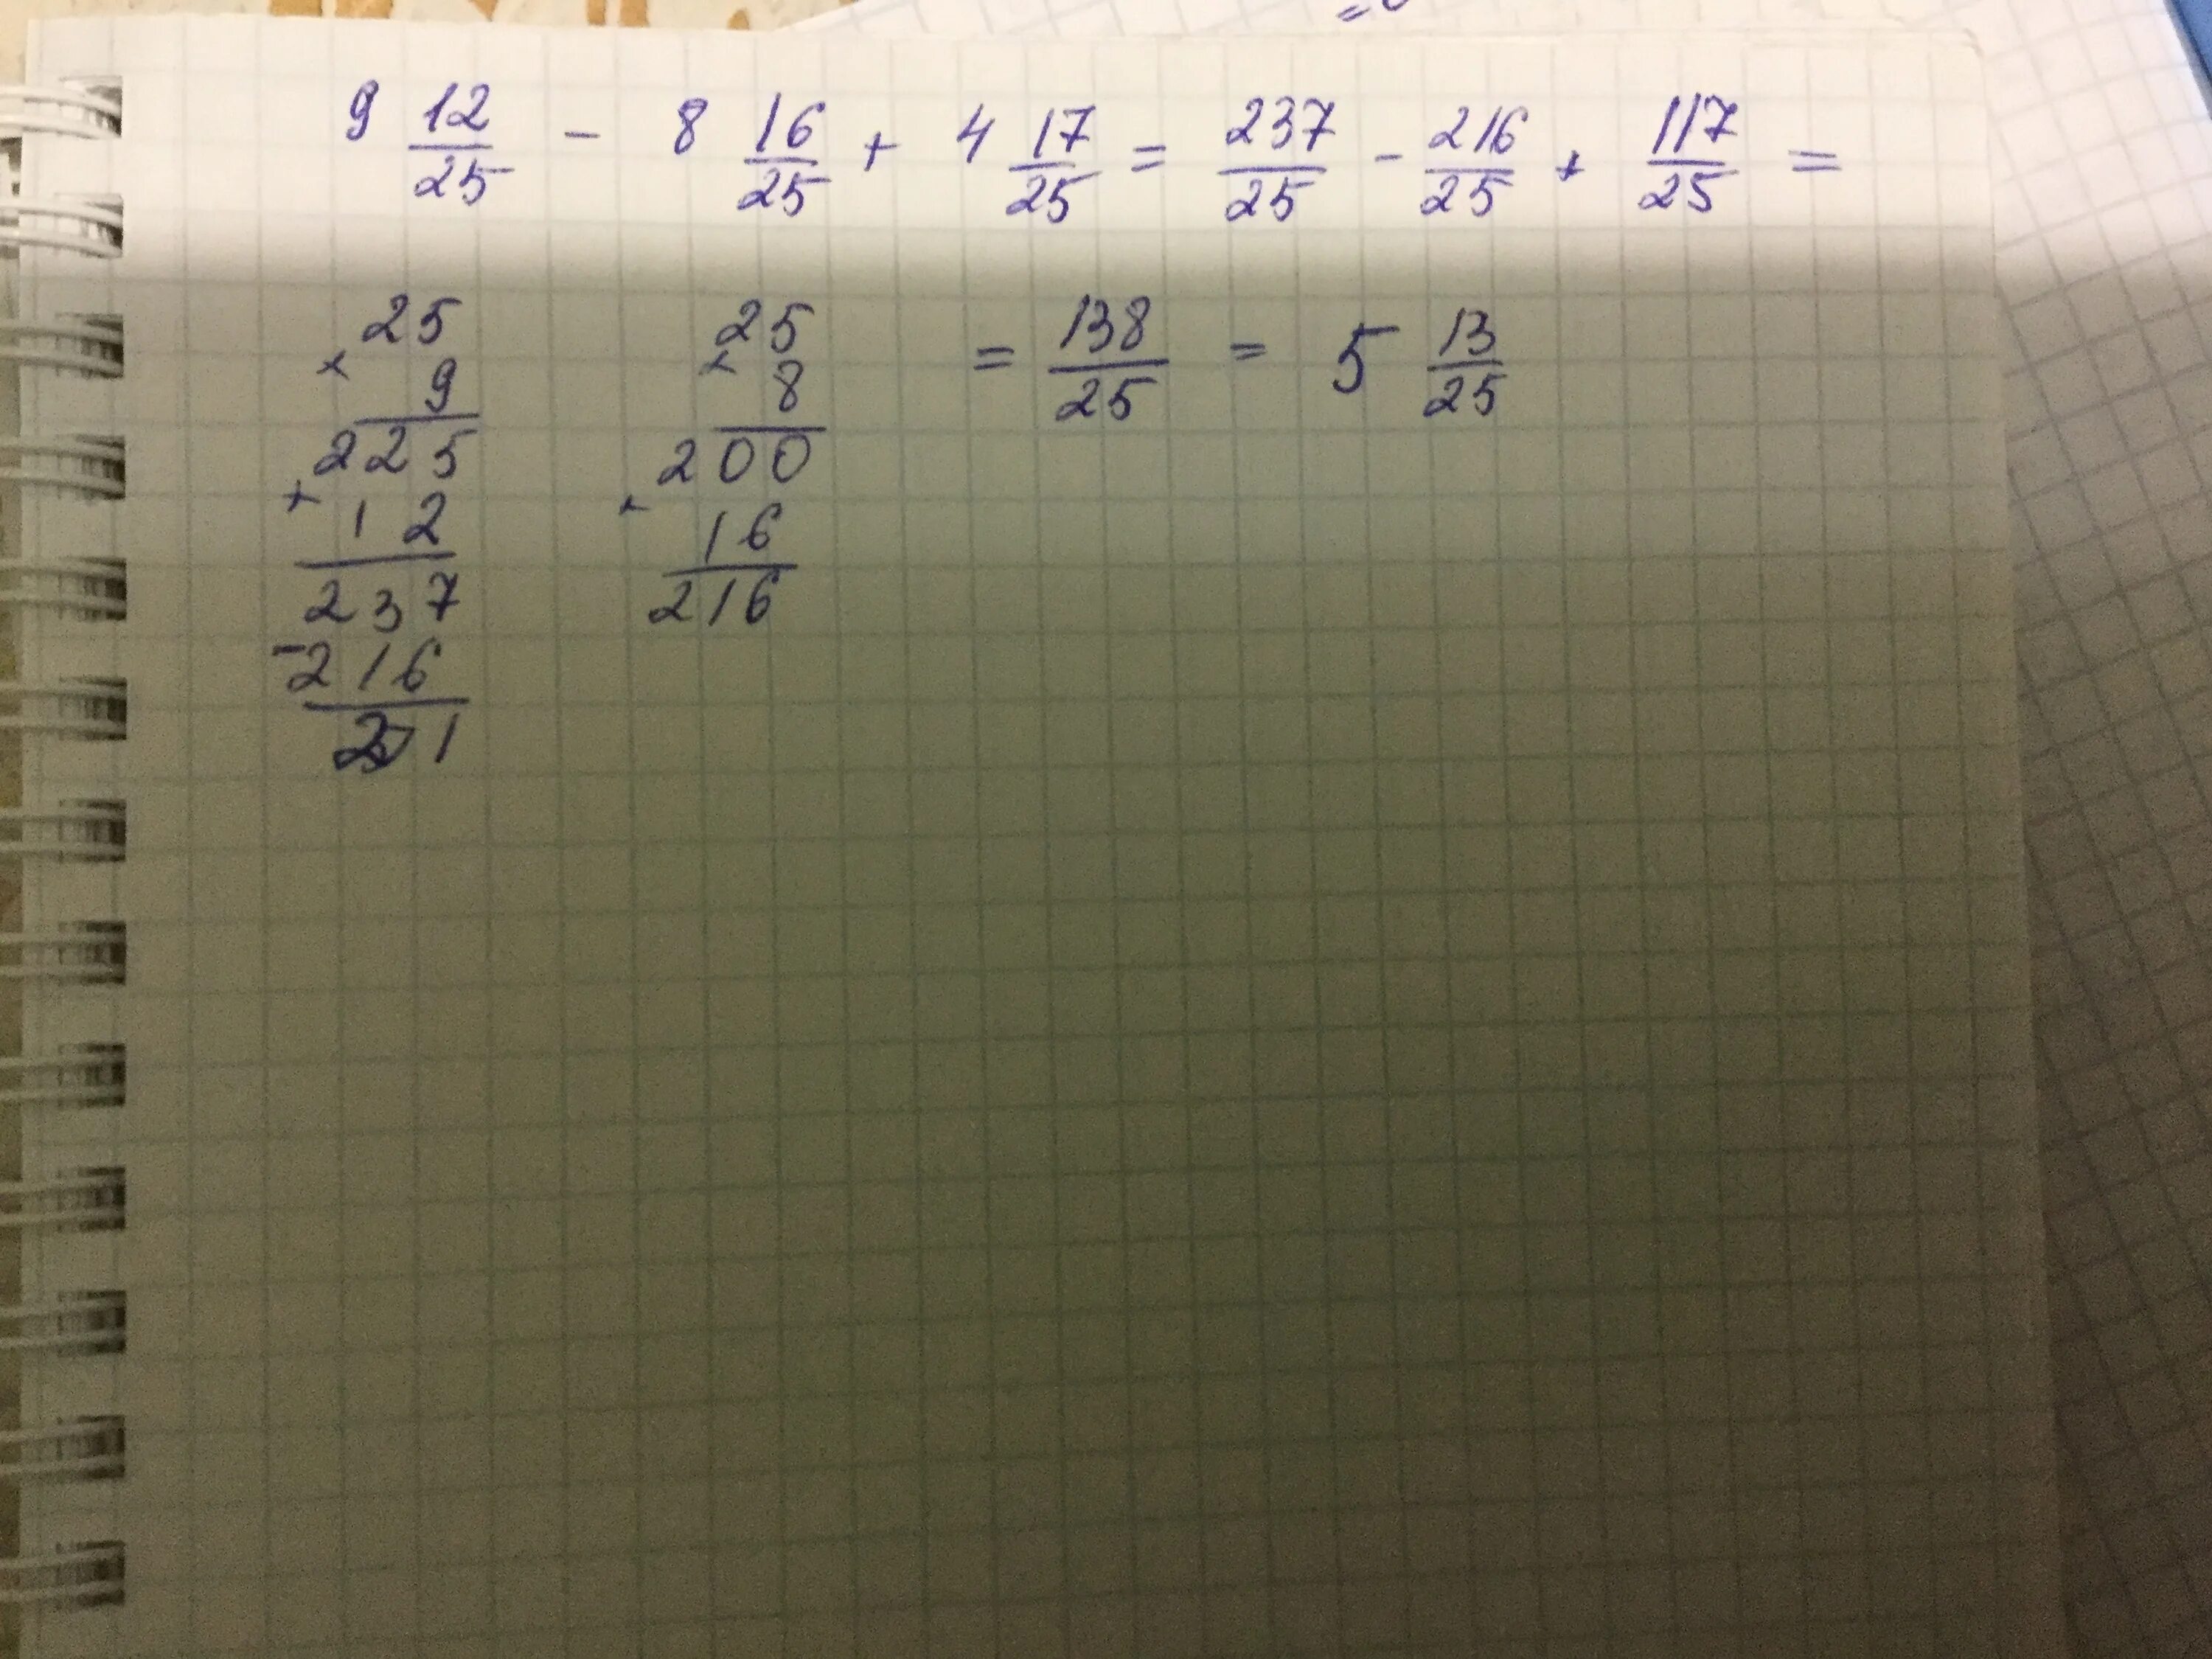 9 12/25 - 8 16/25 + 4 17/25 = 237/25 - 216/25 + 117/25 =
= 138/25 = 5 13/25
25
× 9
225
+ 12
237
- 216
21
25
× 8
200
+ 16
216